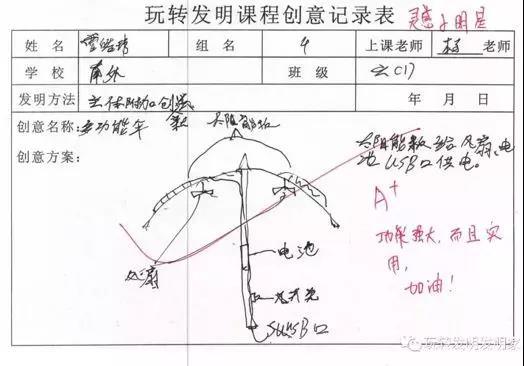 玩转发明课程创意记录表 灵感小明星
姓名 组名 4 上课老师 老师
学校 南外 班级
发明方法 主体附加创造 年 月 日
创意名称: 多功能伞
太阳能板
创意方案:
太阳能板给风扇、电
池USB口供电。
A+
功能强大,而且实
用,
加油!
风扇
电池
总开关
5USB口
玩转发明发明家